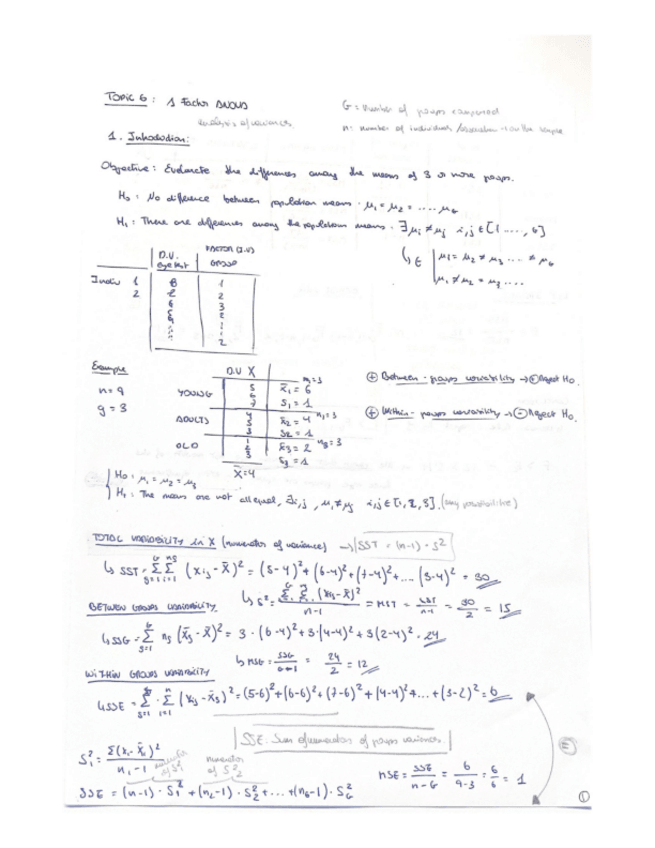 TOPIC 6: 1 Factor ANOVA
analysis of variance
G = number of groups compared
n: number of individuals / in the sample
1. Introduction:
Objective: Evaluate the differences among the means of 3 or more groups.
H₀: No difference between population means. μ₁ = μ₂ = .... μG
H₁: There are differences among the population means. ∃ μi ≠ μj i,j ∈ [1 ...., G]
↳ E | μ₁ = μ₂ ≠ μ₃ ... ≠ μG
μ₁ ≠ μ₂ = μ₃ ....
D.V. FACTOR (I.V)
GROUP
Indiv 1 8 1
2 2
3
2
1
1
2
Example
n = 9
g = 3
D.V X
YOUNG 5 6 7 n₁=3 x̄₁ = 6 S₁ = 1
ADULTS 4 5 3 n₂=3 x̄₂ = 4 S₂ = 1
OLD 1 2 3 n₃=3 x̄₃ = 2 S₃ = 1
X̄ = 4
⊕ Between-groups variability → ⊕ Reject H₀.
⊕ Within-groups variability → ⊖ Reject H₀.
H₀: μ₁ = μ₂ = μ₃
H₁: The means are not all equal, ∃i,j, μi ≠ μj i,j ∈ [1, 2, 3]. (any possibilities)
TOTAL VARIABILITY in X (numerator of variance) → SST = (n-1) · S²
↳ SST = Σ Σ (xij - X̄)² = (5-4)² + (6-4)² + (7-4)² + .... (3-4)² = 30
↳ S² = Σ Σ (xij - X̄)² / n-1 = MST = SST / n-1 = 30 / 2 = 15
BETWEEN GROUPS VARIABILITY
↳ SSG = Σ nj (x̄j - X̄)² = 3 · (6-4)² + 3·(4-4)² + 3(2-4)² = 24
↳ MSG = SSG / G-1 = 24 / 2 = 12
WITHIN GROUPS VARIABILITY
↳ SSE = Σ · Σ (xij - x̄j)² = (5-6)² + (6-6)² + (7-6)² + (4-4)² + ... + (3-2)² = 6
SSE: Sum of numerators of groups variances.
S₁² = Σ(xi - x̄i)² / n₁-1
numerator of S₁²
numerator of S₂²
MSE = SSE / n-G = 6 / 9-3 = 6 / 6 = 1
SSE = (n-1) · S₁² + (n₂-1) · S₂² + ... + (nG-1) · SG²
E
1